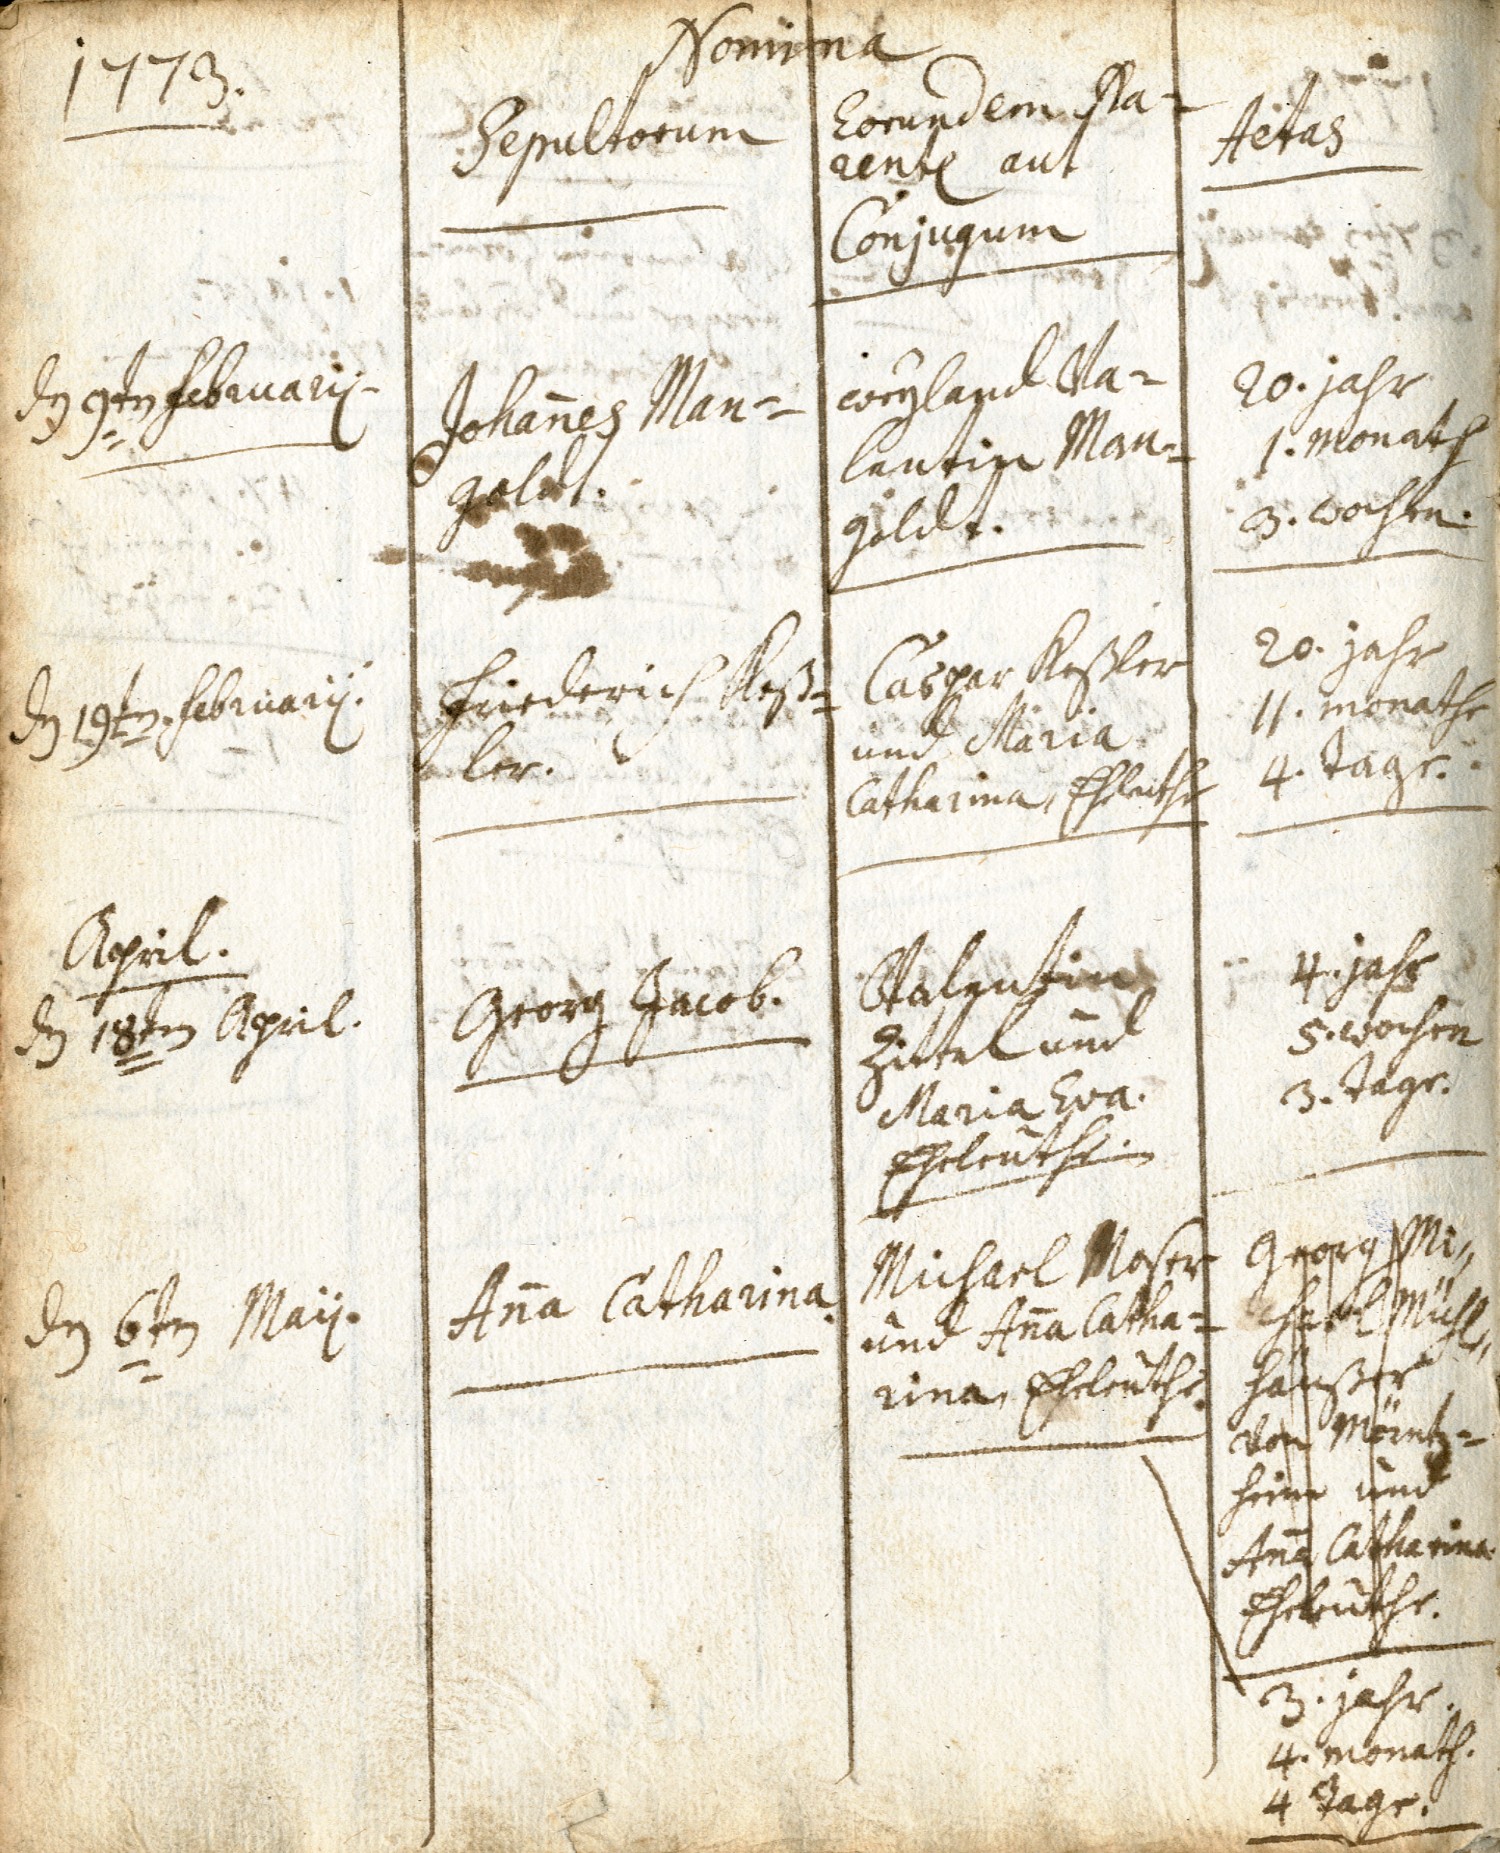 1773.
Nomina
Sepultorum
Eorundem Pa=
rentũ aut
Conjugum
Aetas
dn 9ten Februarij.
Johañes Man=
goldt.
weyland Va=
lentin Man=
goldt.
20. jahr
1. monath
3. wochen.
dn 19ten Februarij.
Friederich Keß=
ler.
Caspar Keßler
und Maria
Catharina, Eheleuthe
20. jahr
11. monathe
4. tage.
April.
dn 18ten April.
Georg Jacob.
Valentin
Zittel und
Maria Eva.
Eheleuthe.
4. jahr
5. wochen
3. tage.
dn 6ten Maij.
Aña Catharina.
Michael Moser
und Aña Catha=
rina, Eheleuthe.
Georg Mi=
chael Mühl=
häußer
von Möntz=
heim und
Aña Catharina
Eheleuthe.
3. jahr.
4. monath.
4 tage.